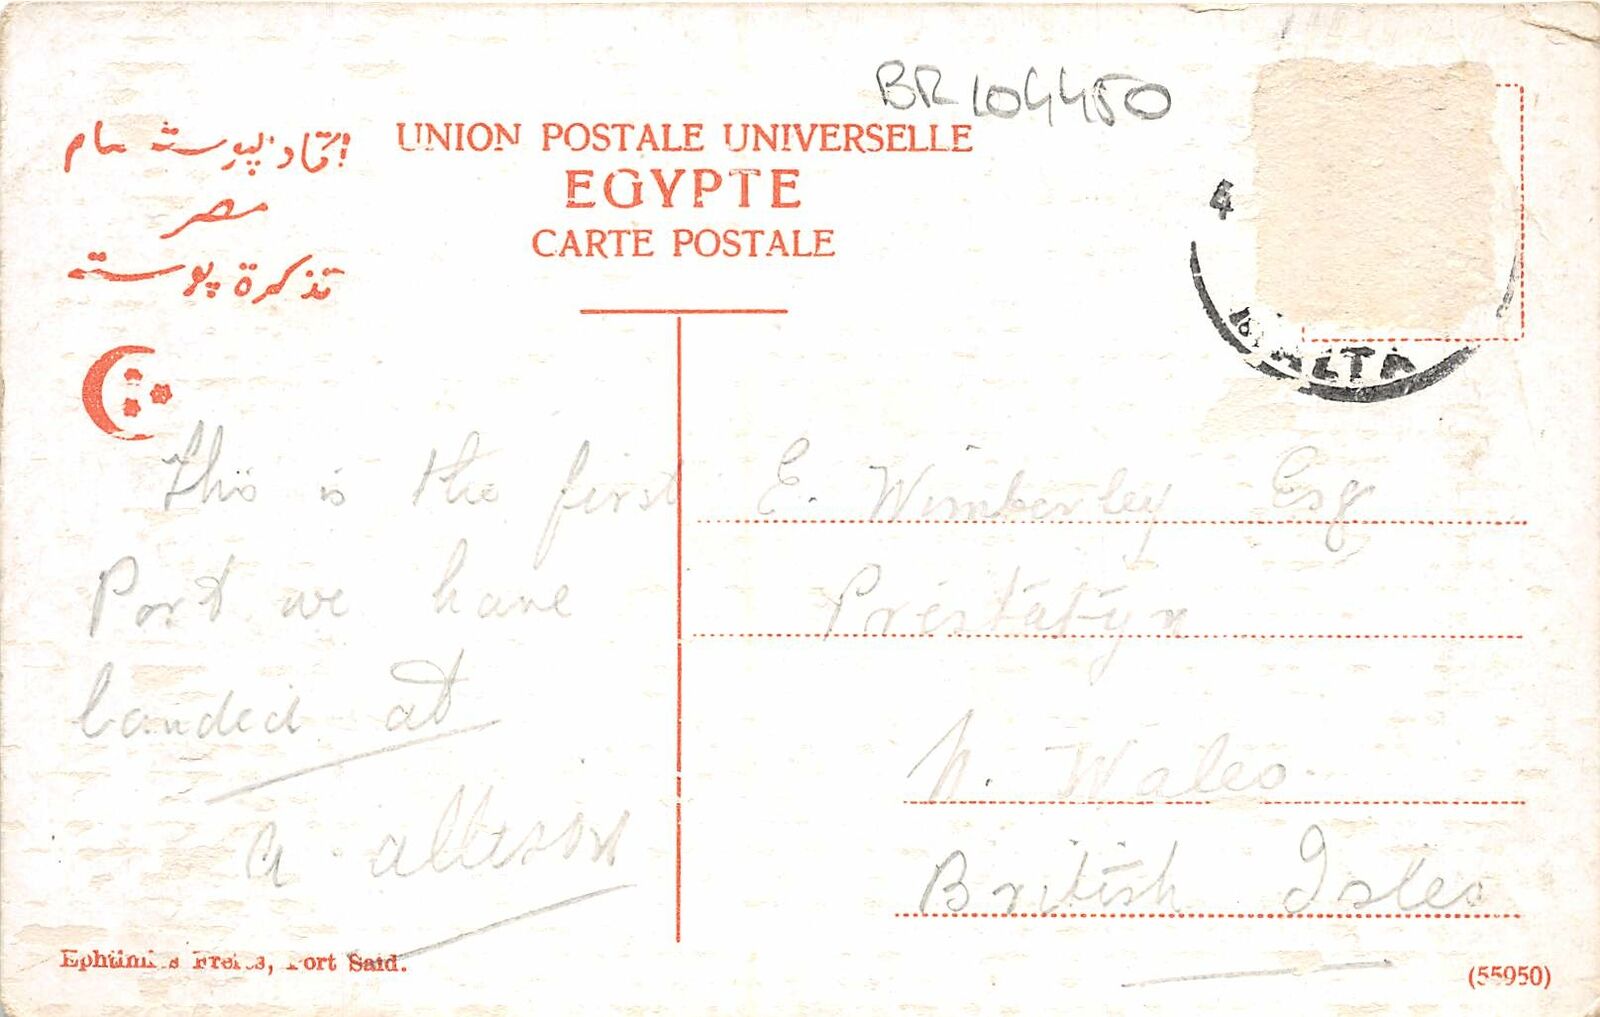 BR104450
اتحاد پوسته عام
UNION POSTALE UNIVERSELLE
مصر
EGYPTE
تذكرة پوسته
CARTE POSTALE
4
MALTA
This is the first
Port we have
landed at
a allison
E. Wimberley Esq
Prestatyn
N. Wales
British Isles
Port Said.
(55950)